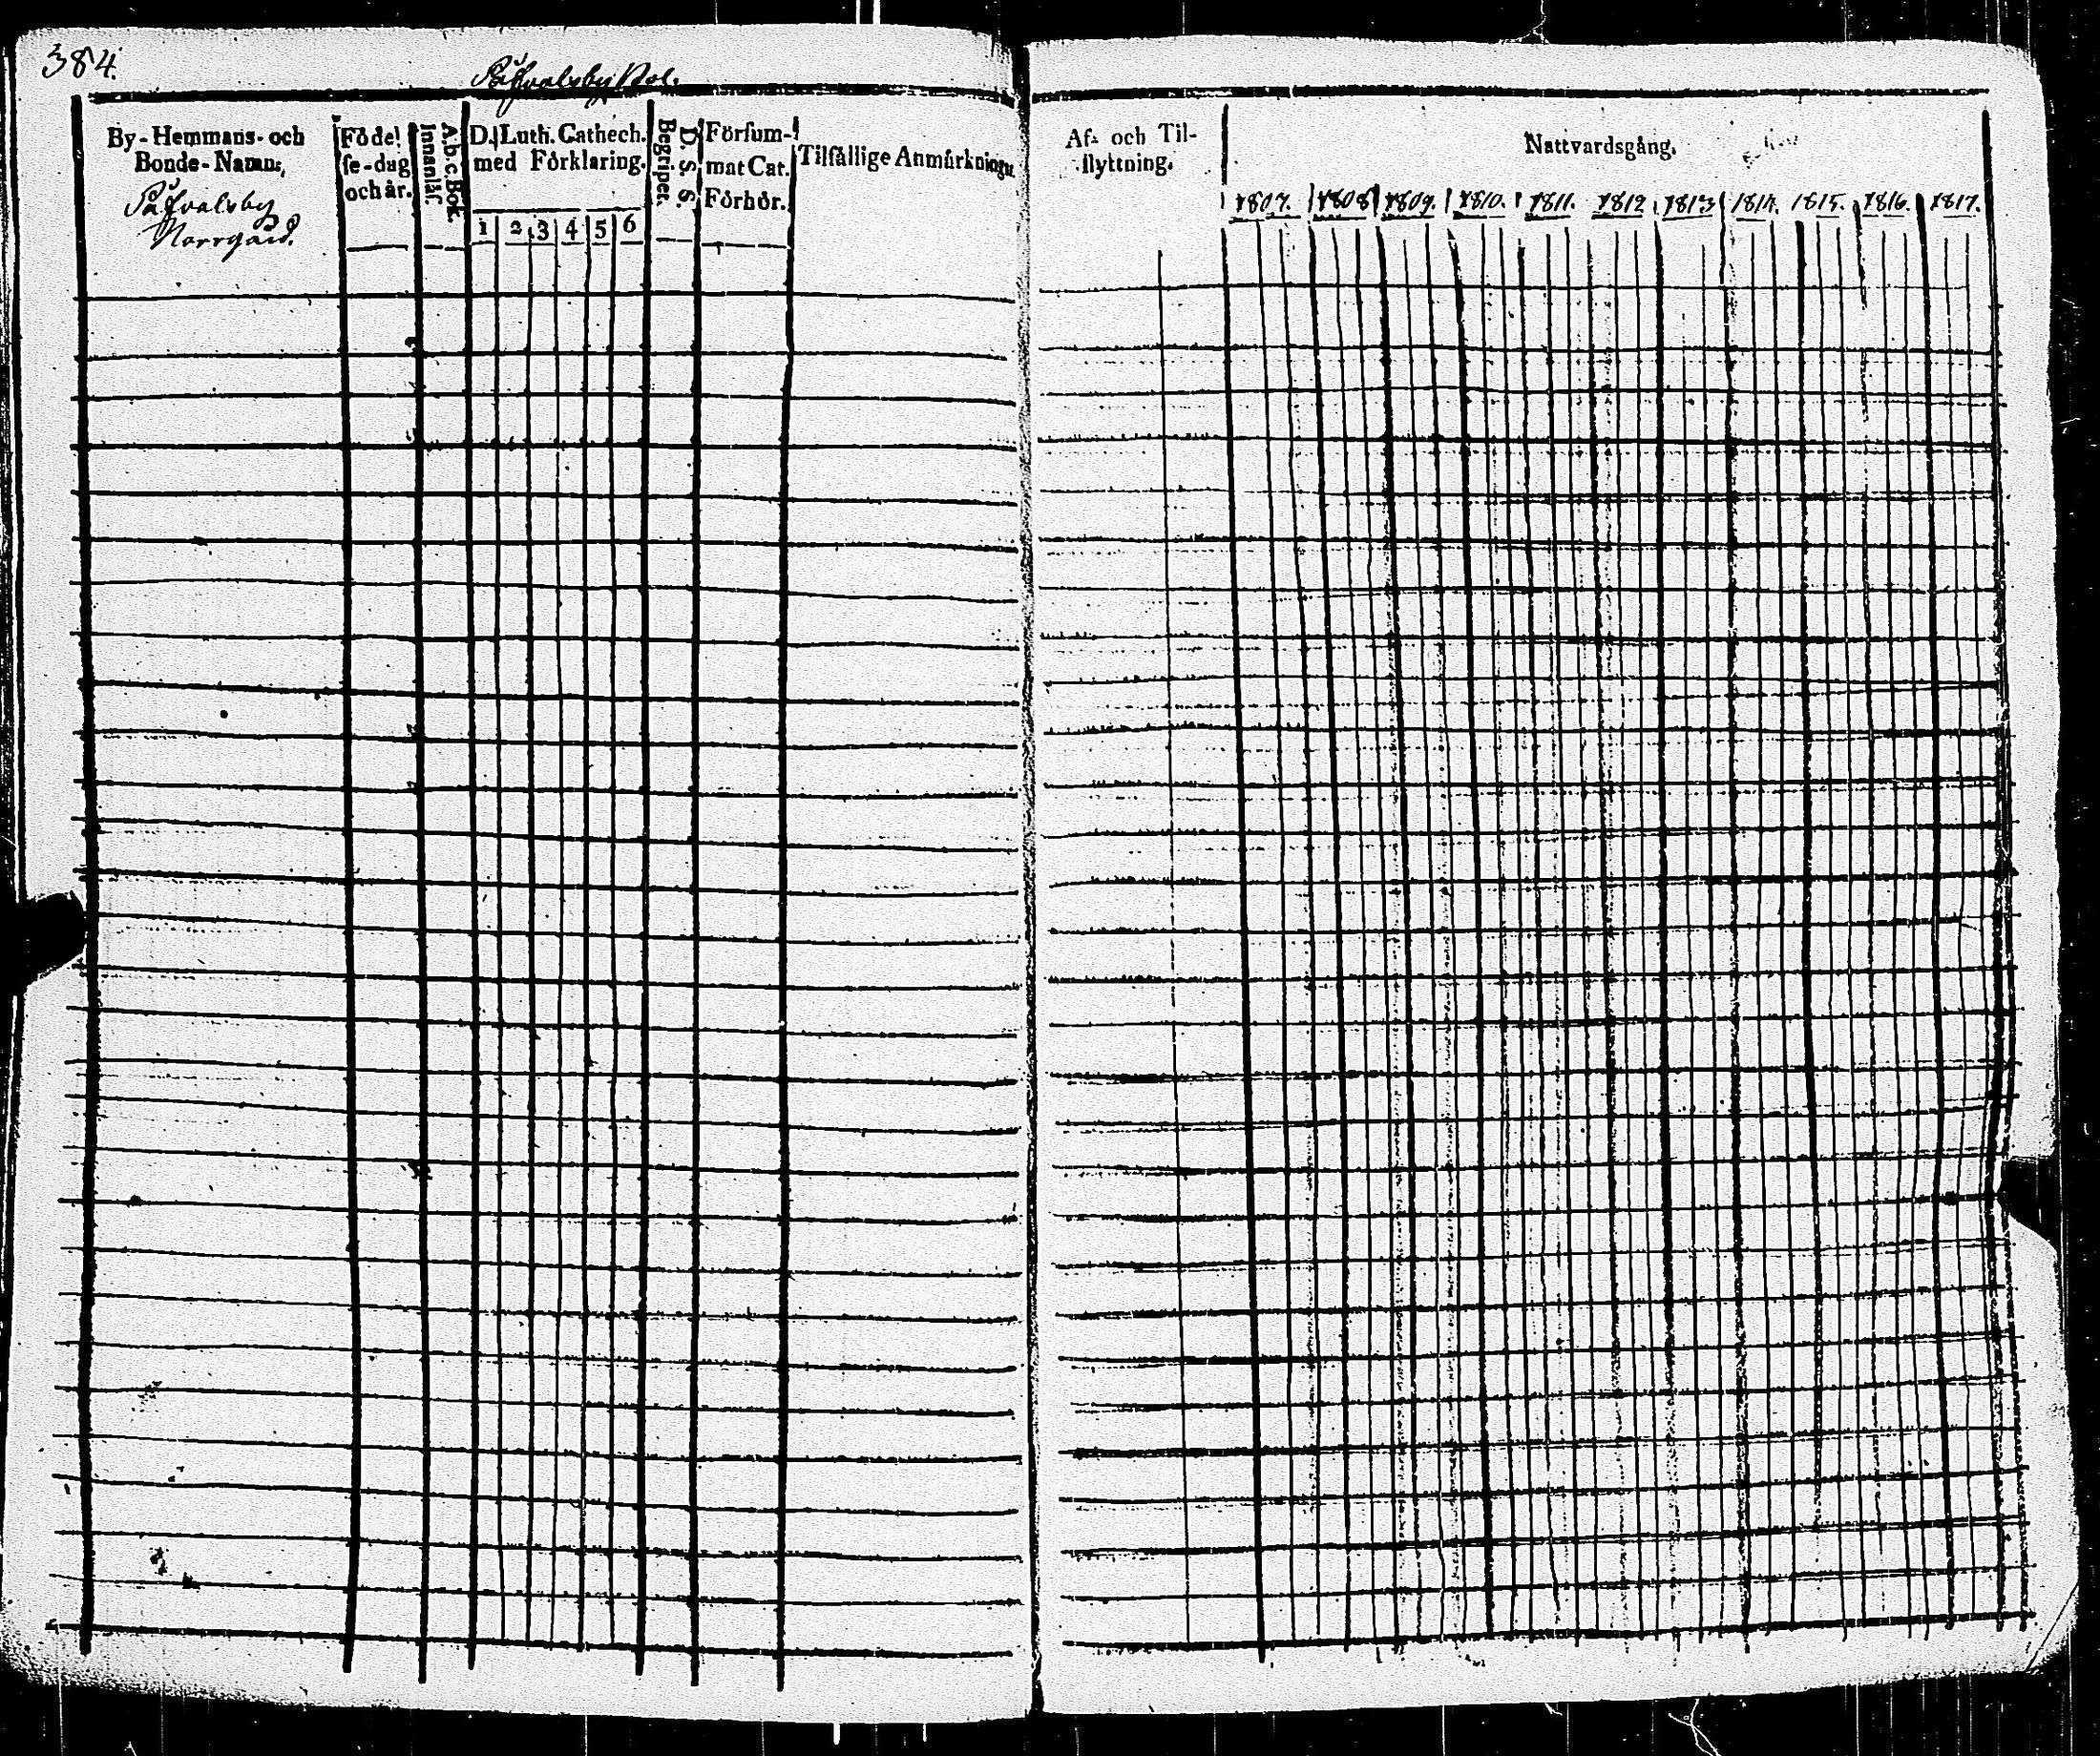 384.
Påfvalsby Rol.
By-Hemmans- och
Bonde-Namn,
Påfvalsby
Norrgård.
Födel
se-dag
och år.
A.b.c.Bok.
Innanläs.
D. Luth. Cathech.
med Förklaring.
1 2 3 4 5 6
D. S. S.
Begriper.
Försum-
mat Cat.
Förhör.
Tilfällige Anmärkningr.
Af- och Til-
flyttning.
Nattvardsgång.
1807. 1808 1809. 1810. 1811. 1812 1813 1814. 1815. 1816. 1817.